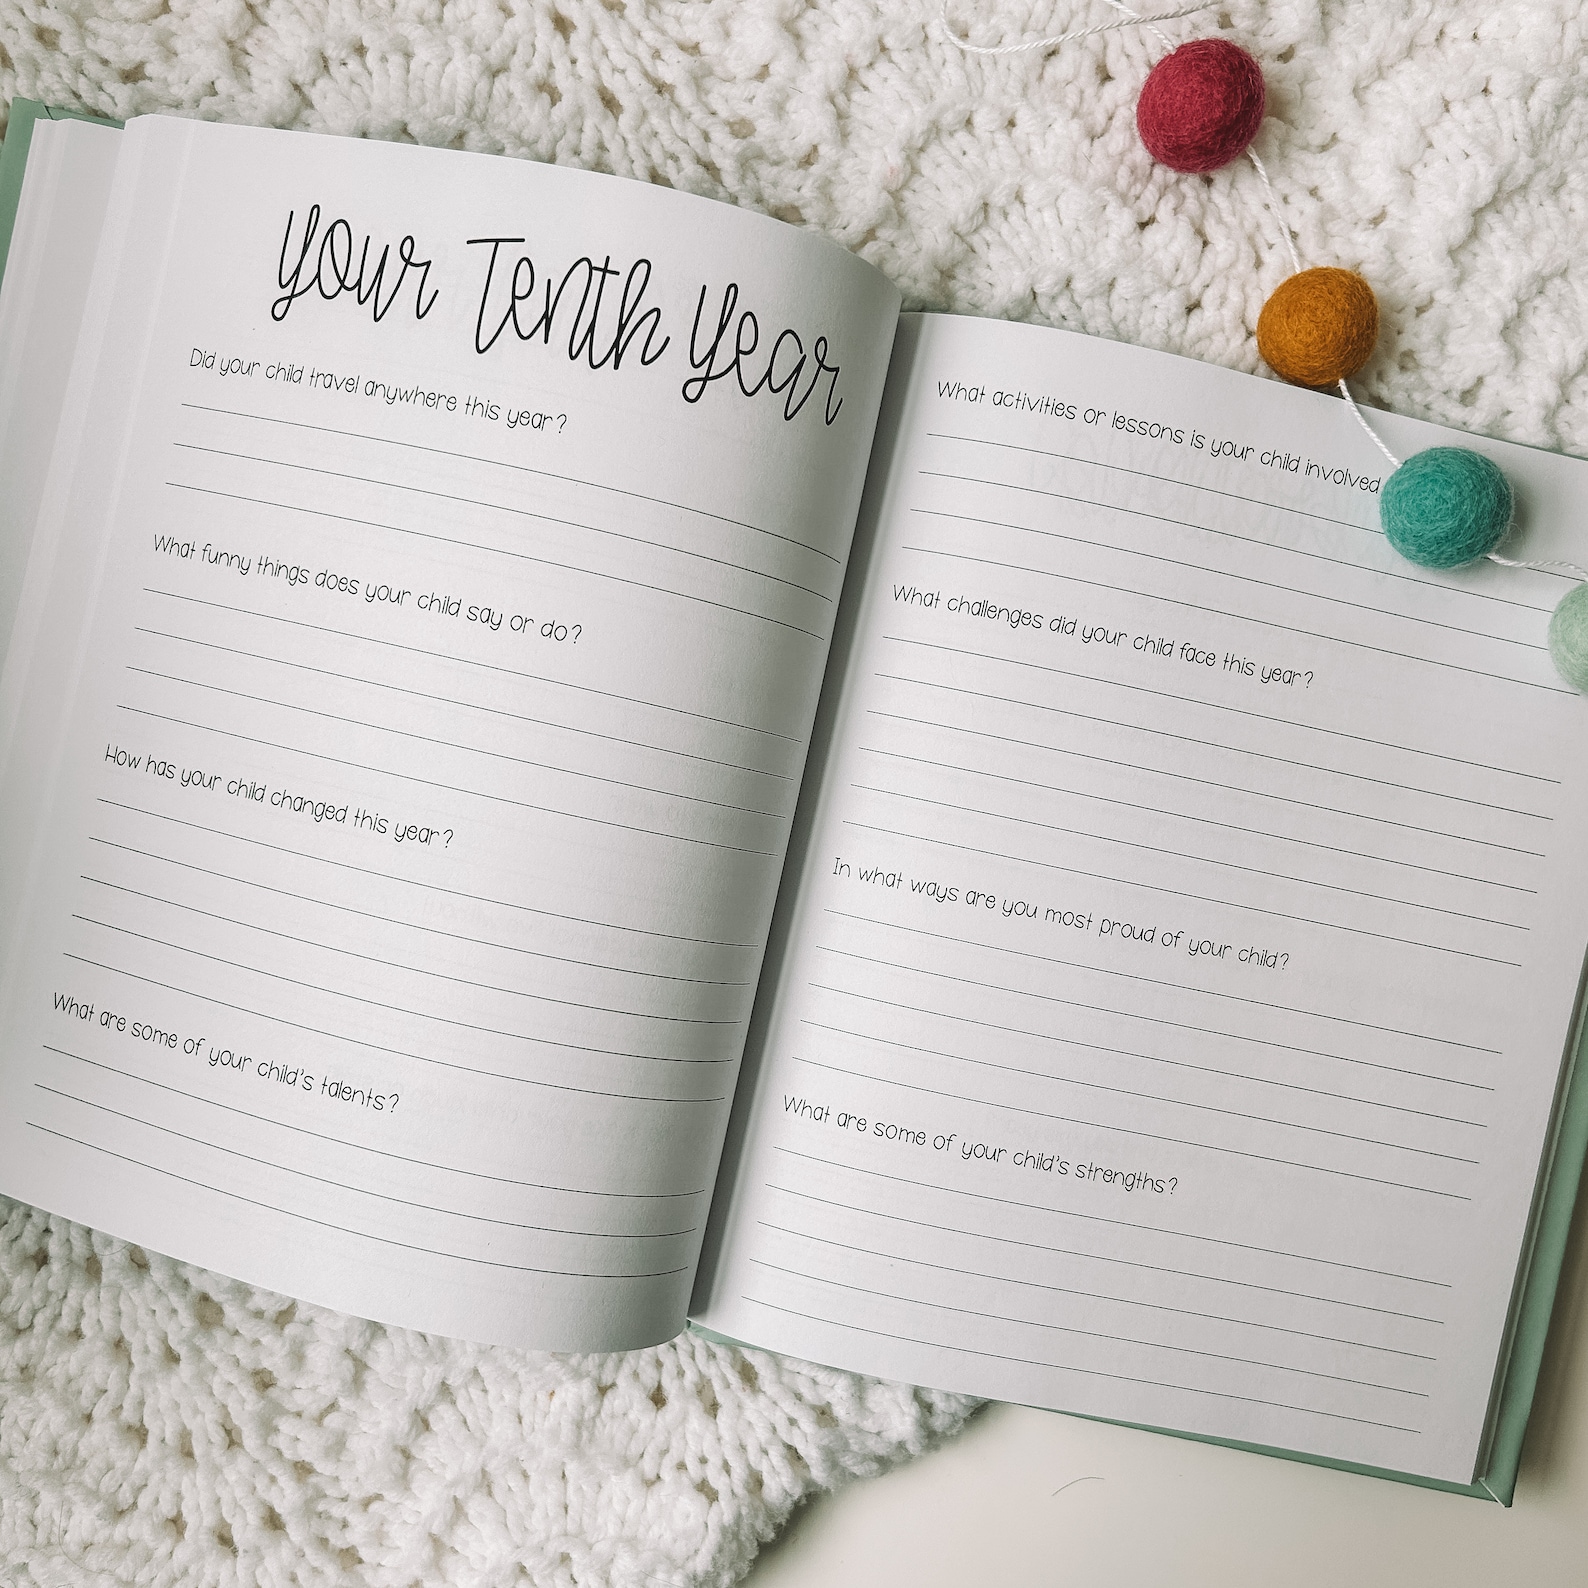 your Tenth year
Did your child travel anywhere this year?
What funny things does your child say or do?
How has your child changed this year?
What are some of your child's talents?
What activities or lessons is your child involved
What challenges did your child face this year?
In what ways are you most proud of your child?
What are some of your child's strengths?